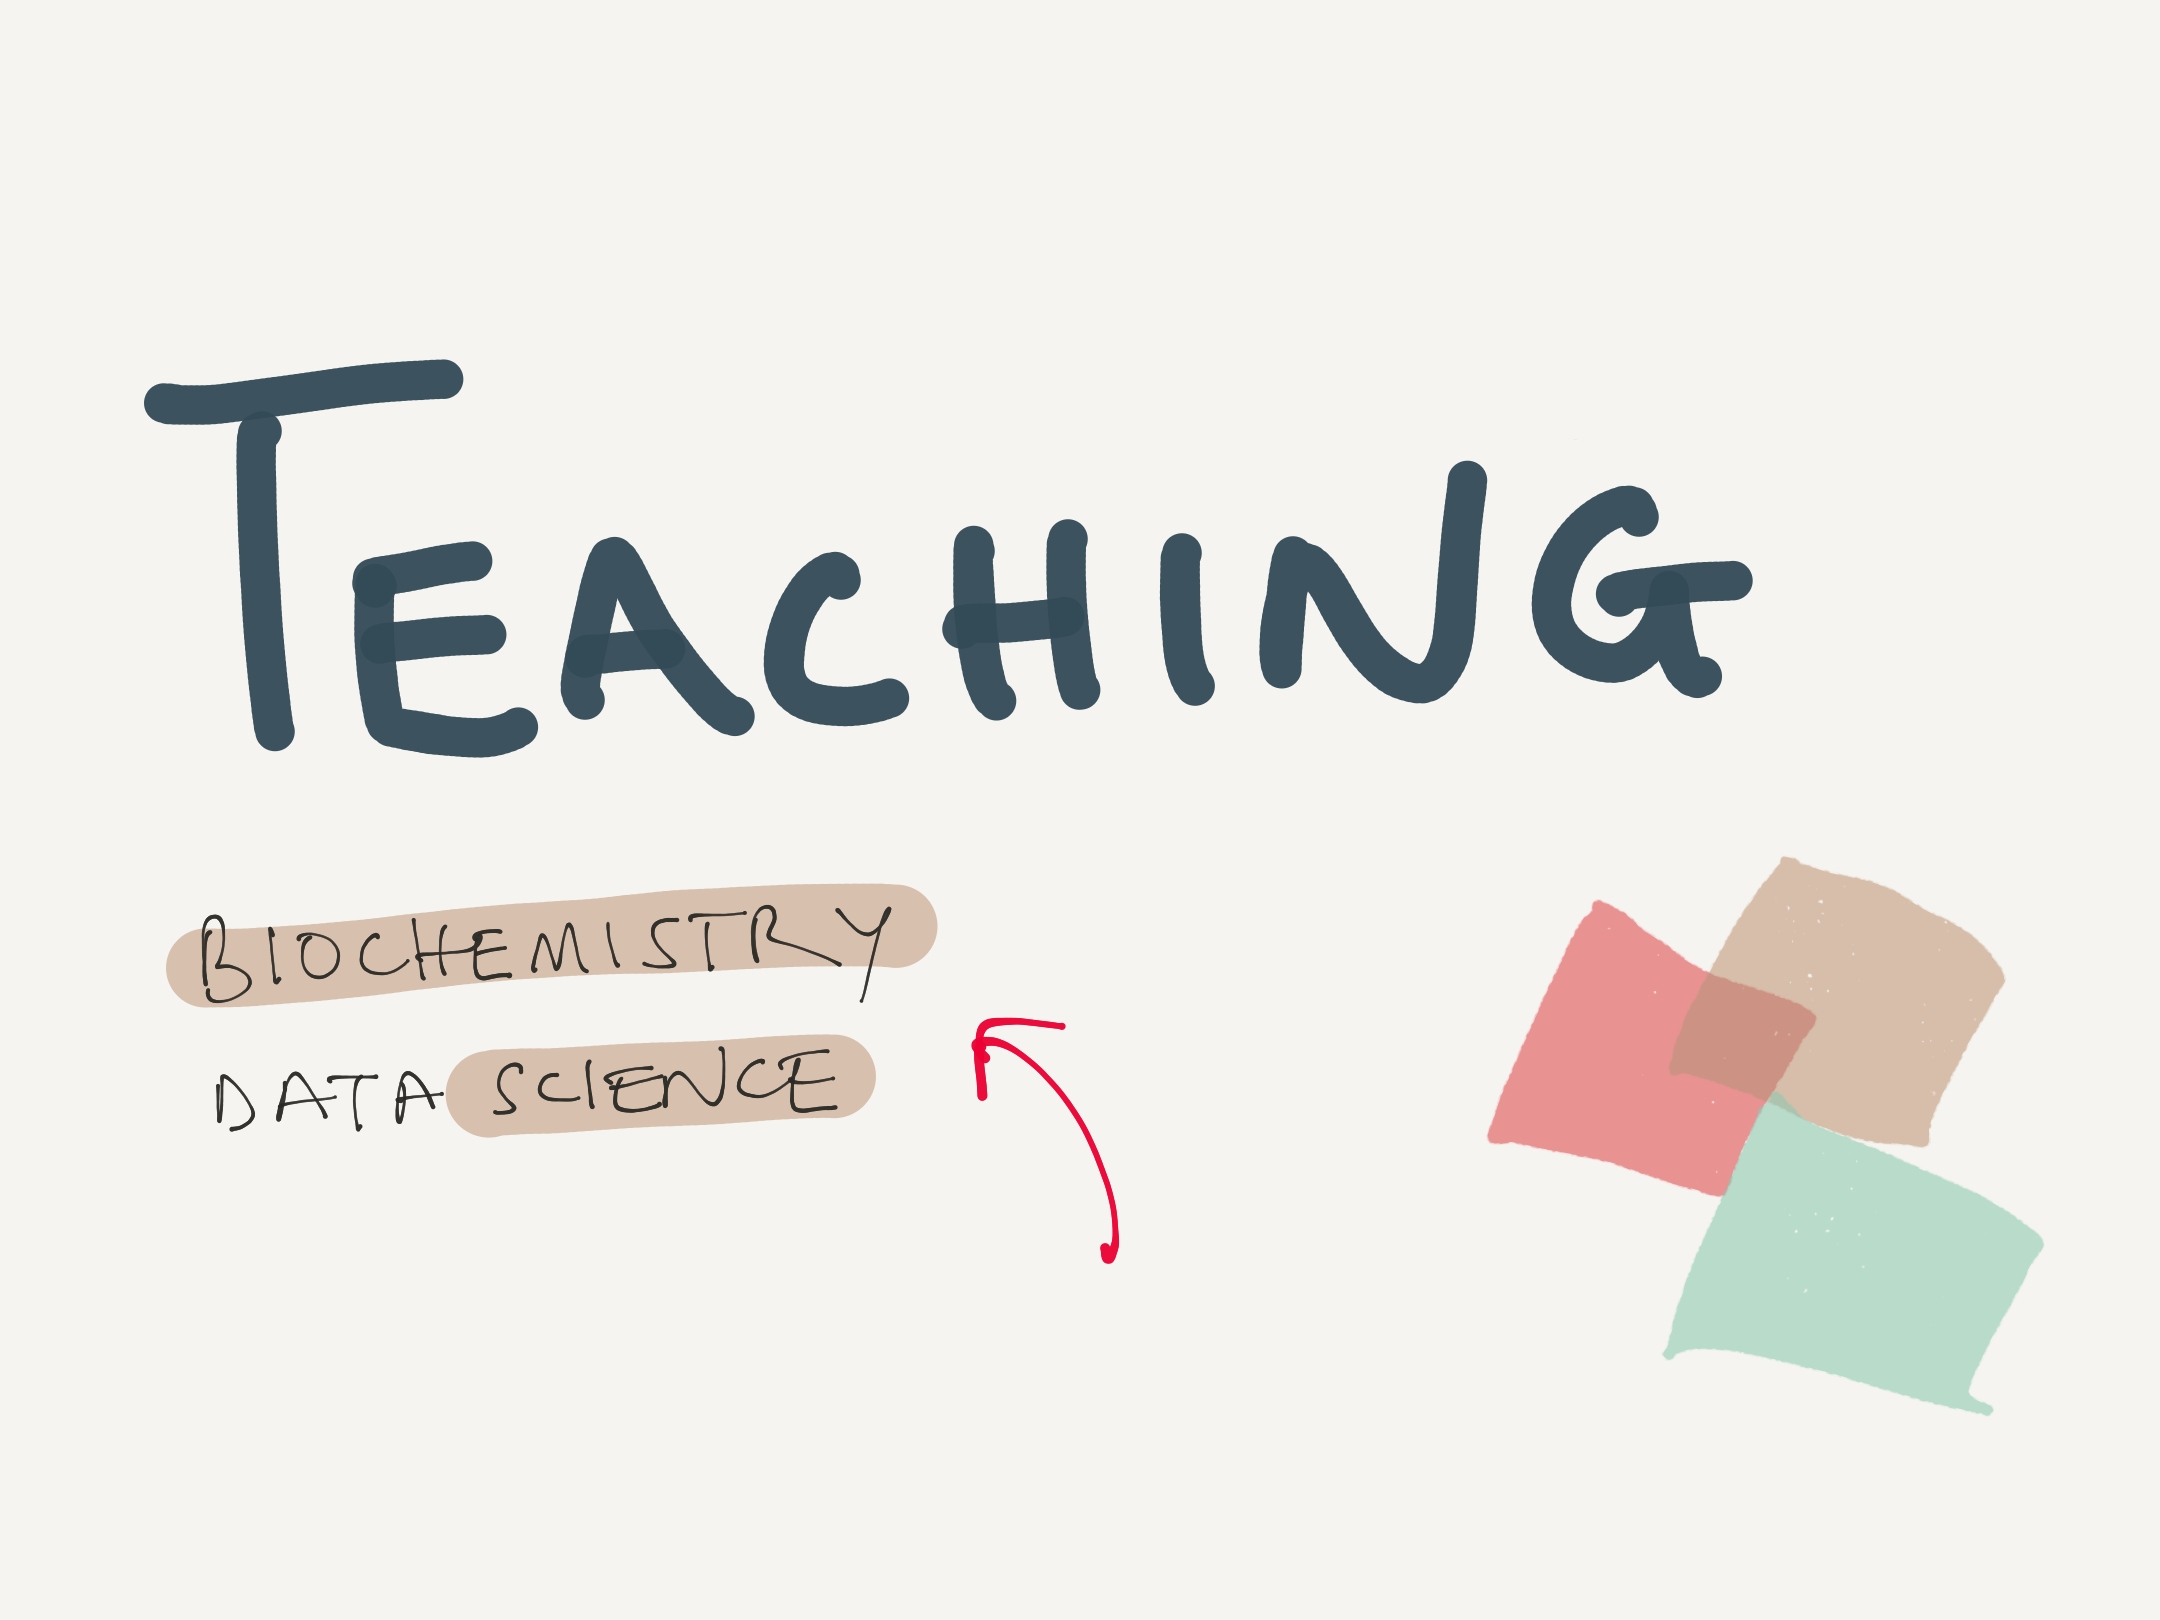 TEACHING
BIOCHEMISTRY
DATA SCIENCE